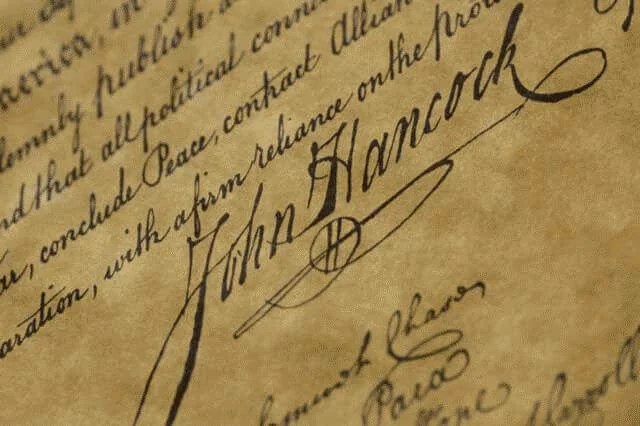 merica, in
lemnly publish a
nd that all political conne
ar, conclude Peace, contract Allian
aration, with a firm reliance on the pro
John Hancock
Chase
Paca
Carroll